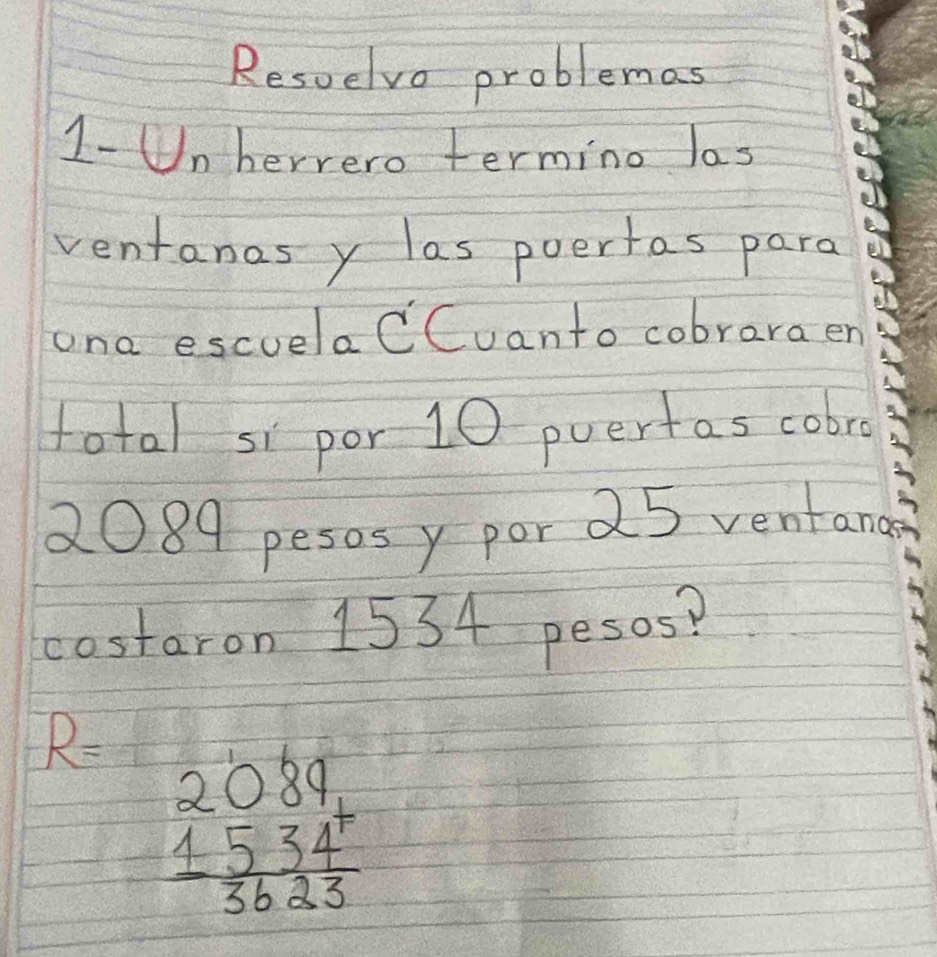 Resuelvo problemas
1- Un herrero termino las
ventanas y las puertas para
una escuela C'Cuanto cobrara en
total si por 10 puertas cobro
2089 pesos y por 25 ventanas
costaron 1534 pesos?
R=
1 1
2089
+
1534
3623